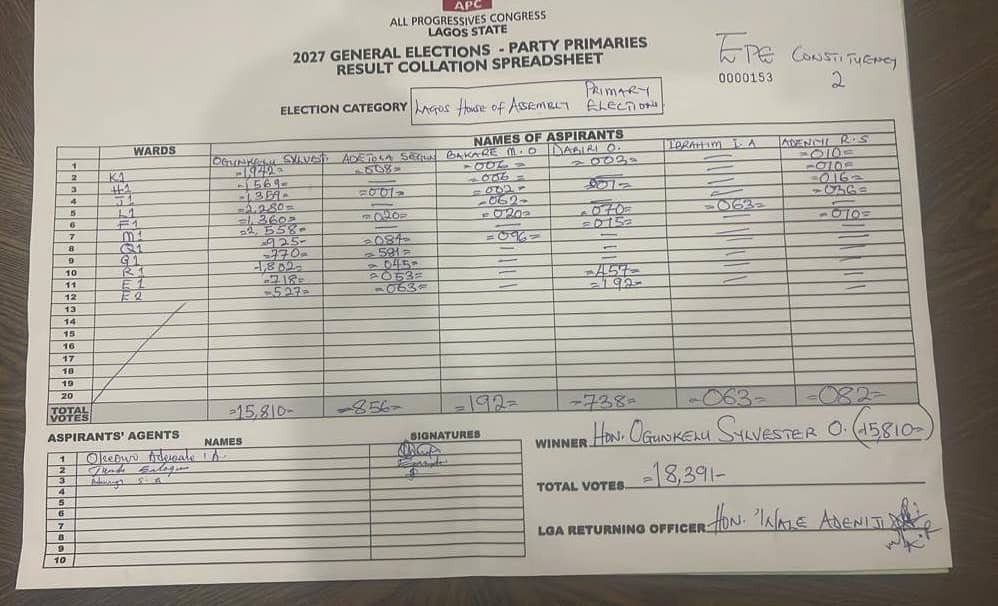 APC
ALL PROGRESSIVES CONGRESS
LAGOS STATE
2027 GENERAL ELECTIONS - PARTY PRIMARIES
RESULT COLLATION SPREADSHEET
EPE CONSTITUENCY
2
0000153
ELECTION CATEGORY LAGOS HOUSE OF ASSEMBLY PRIMARY ELECTION
WARDS NAMES OF ASPIRANTS
OGUNKELU SYLVEST. ADETOLA SEGUN BAKARE M.O DABIRI O. IBRAHIM I.A ADENIYI R.S
1 =1,942= =008= =006= =003= =010=
2 K1 =1,569= — =006= — — =010=
3 H1 =1,359= =001= =002= =001= — =016=
4 J1 =2,280= — =062= — — =036=
5 L1 =1,360= =020= =020= =070= =063= —
6 F1 =2,558= — — =015= — =010=
7 M1 =925= =084= =096= — —
8 Q1 =770= =581= — — —
9 G1 =1,802= =045= — — —
10 R1 =718= =053= — =457= — —
11 E1 =527= =063= — =192= — —
12 E2
13
14
15
16
17
18
19
20
TOTAL VOTES =15,810= =856= =192= =738= =063= =082=
ASPIRANTS' AGENTS NAMES SIGNATURES
1 Adewale A.
2
3 S. A
4
5
6
7
8
9
10
WINNER HON. OGUNKELU SYLVESTER O. (=15,810=)
TOTAL VOTES =18,391=
LGA RETURNING OFFICER HON. 'WALE ADENIJI